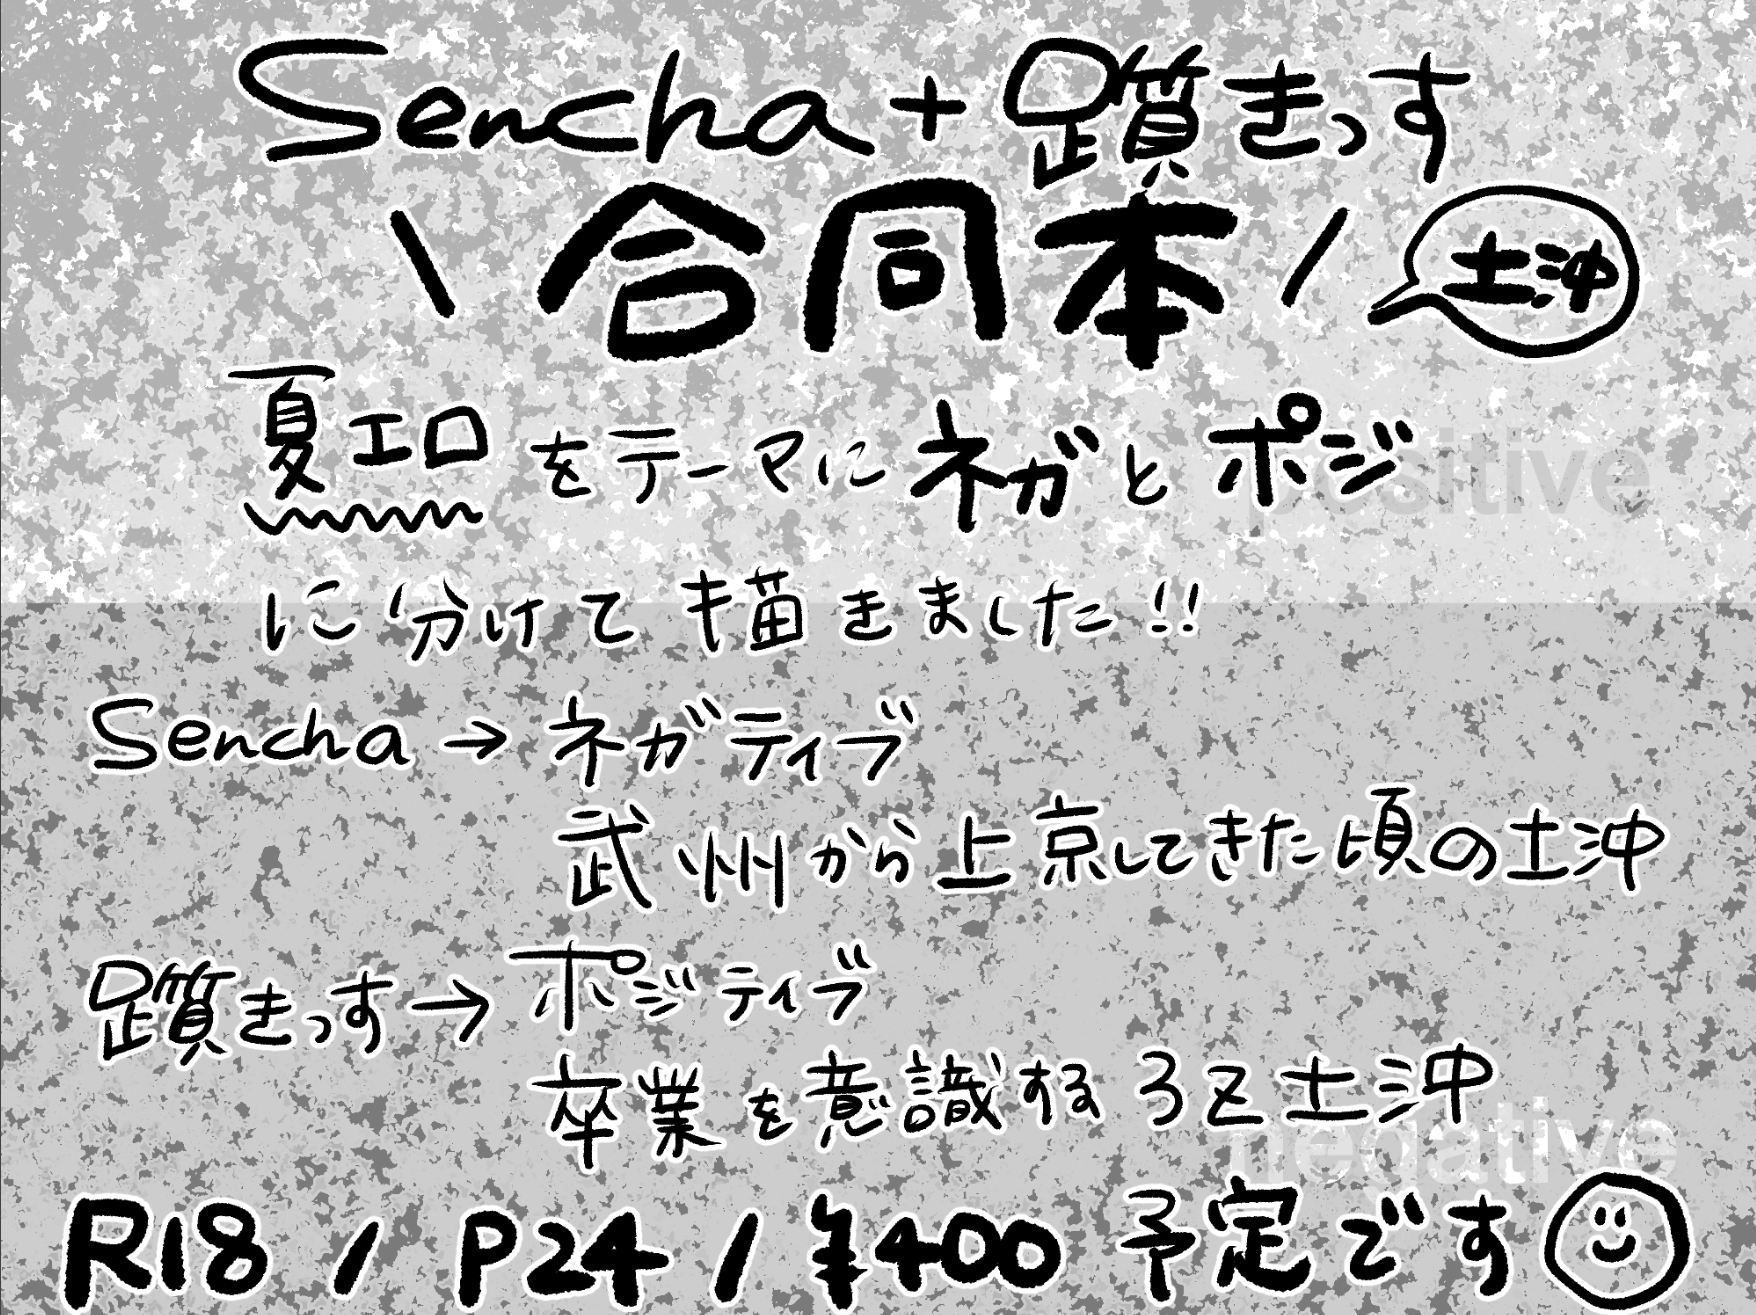 Sencha+躓きっす
\ 合同本 /
土沖
夏エロをテーマにネガとポジ
positive
に分けて描きました!!
Sencha→ネガティブ
武州から上京してきた頃の土沖
躓きっす→ポジティブ
卒業を意識する3Z土沖
negative
R18 / P24 / ¥400 予定です